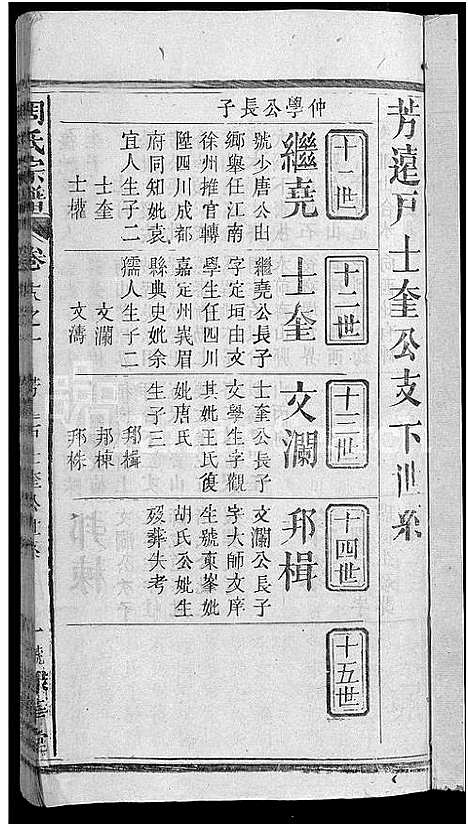 芳遠戶士奎公支下世系
十一世
仲學公長子
繼堯
號少唐公山
鄉舉任江南
徐州推官轉
陞四川成都
府同知妣袁
宜人生子二
士奎
士權
十二世
士奎
繼堯公長子
字定垣由文
學生任四川
嘉定州峩眉
縣典史妣余
孺人生子二
文瀾
文濤
十三世
文瀾
士奎公長子
文學生字觀
其妣王氏復
妣唐氏
生子三
邦楫
邦棟
邦株
十四世
邦楫
文瀾公長子
字大師文庠
生號東峯妣
胡氏公妣生
歿葬失考
十五世
周氏宗譜
卷